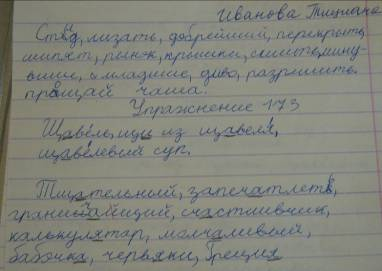 Иванова Татьяна
Стыд, лизать, добрейший, перекрыть,
шипят, рынок, крышки, сшить, мину-
вшие, младшие, диво, разрешить.
прощай чаща.
Упражнение 173
Щавель, щи из щавеля,
щавелевый суп.
Тщательный, запечатлеть,
граничащий, счастливчик,
калькулятор, молчаливый,
бабочка, червяки, Греция